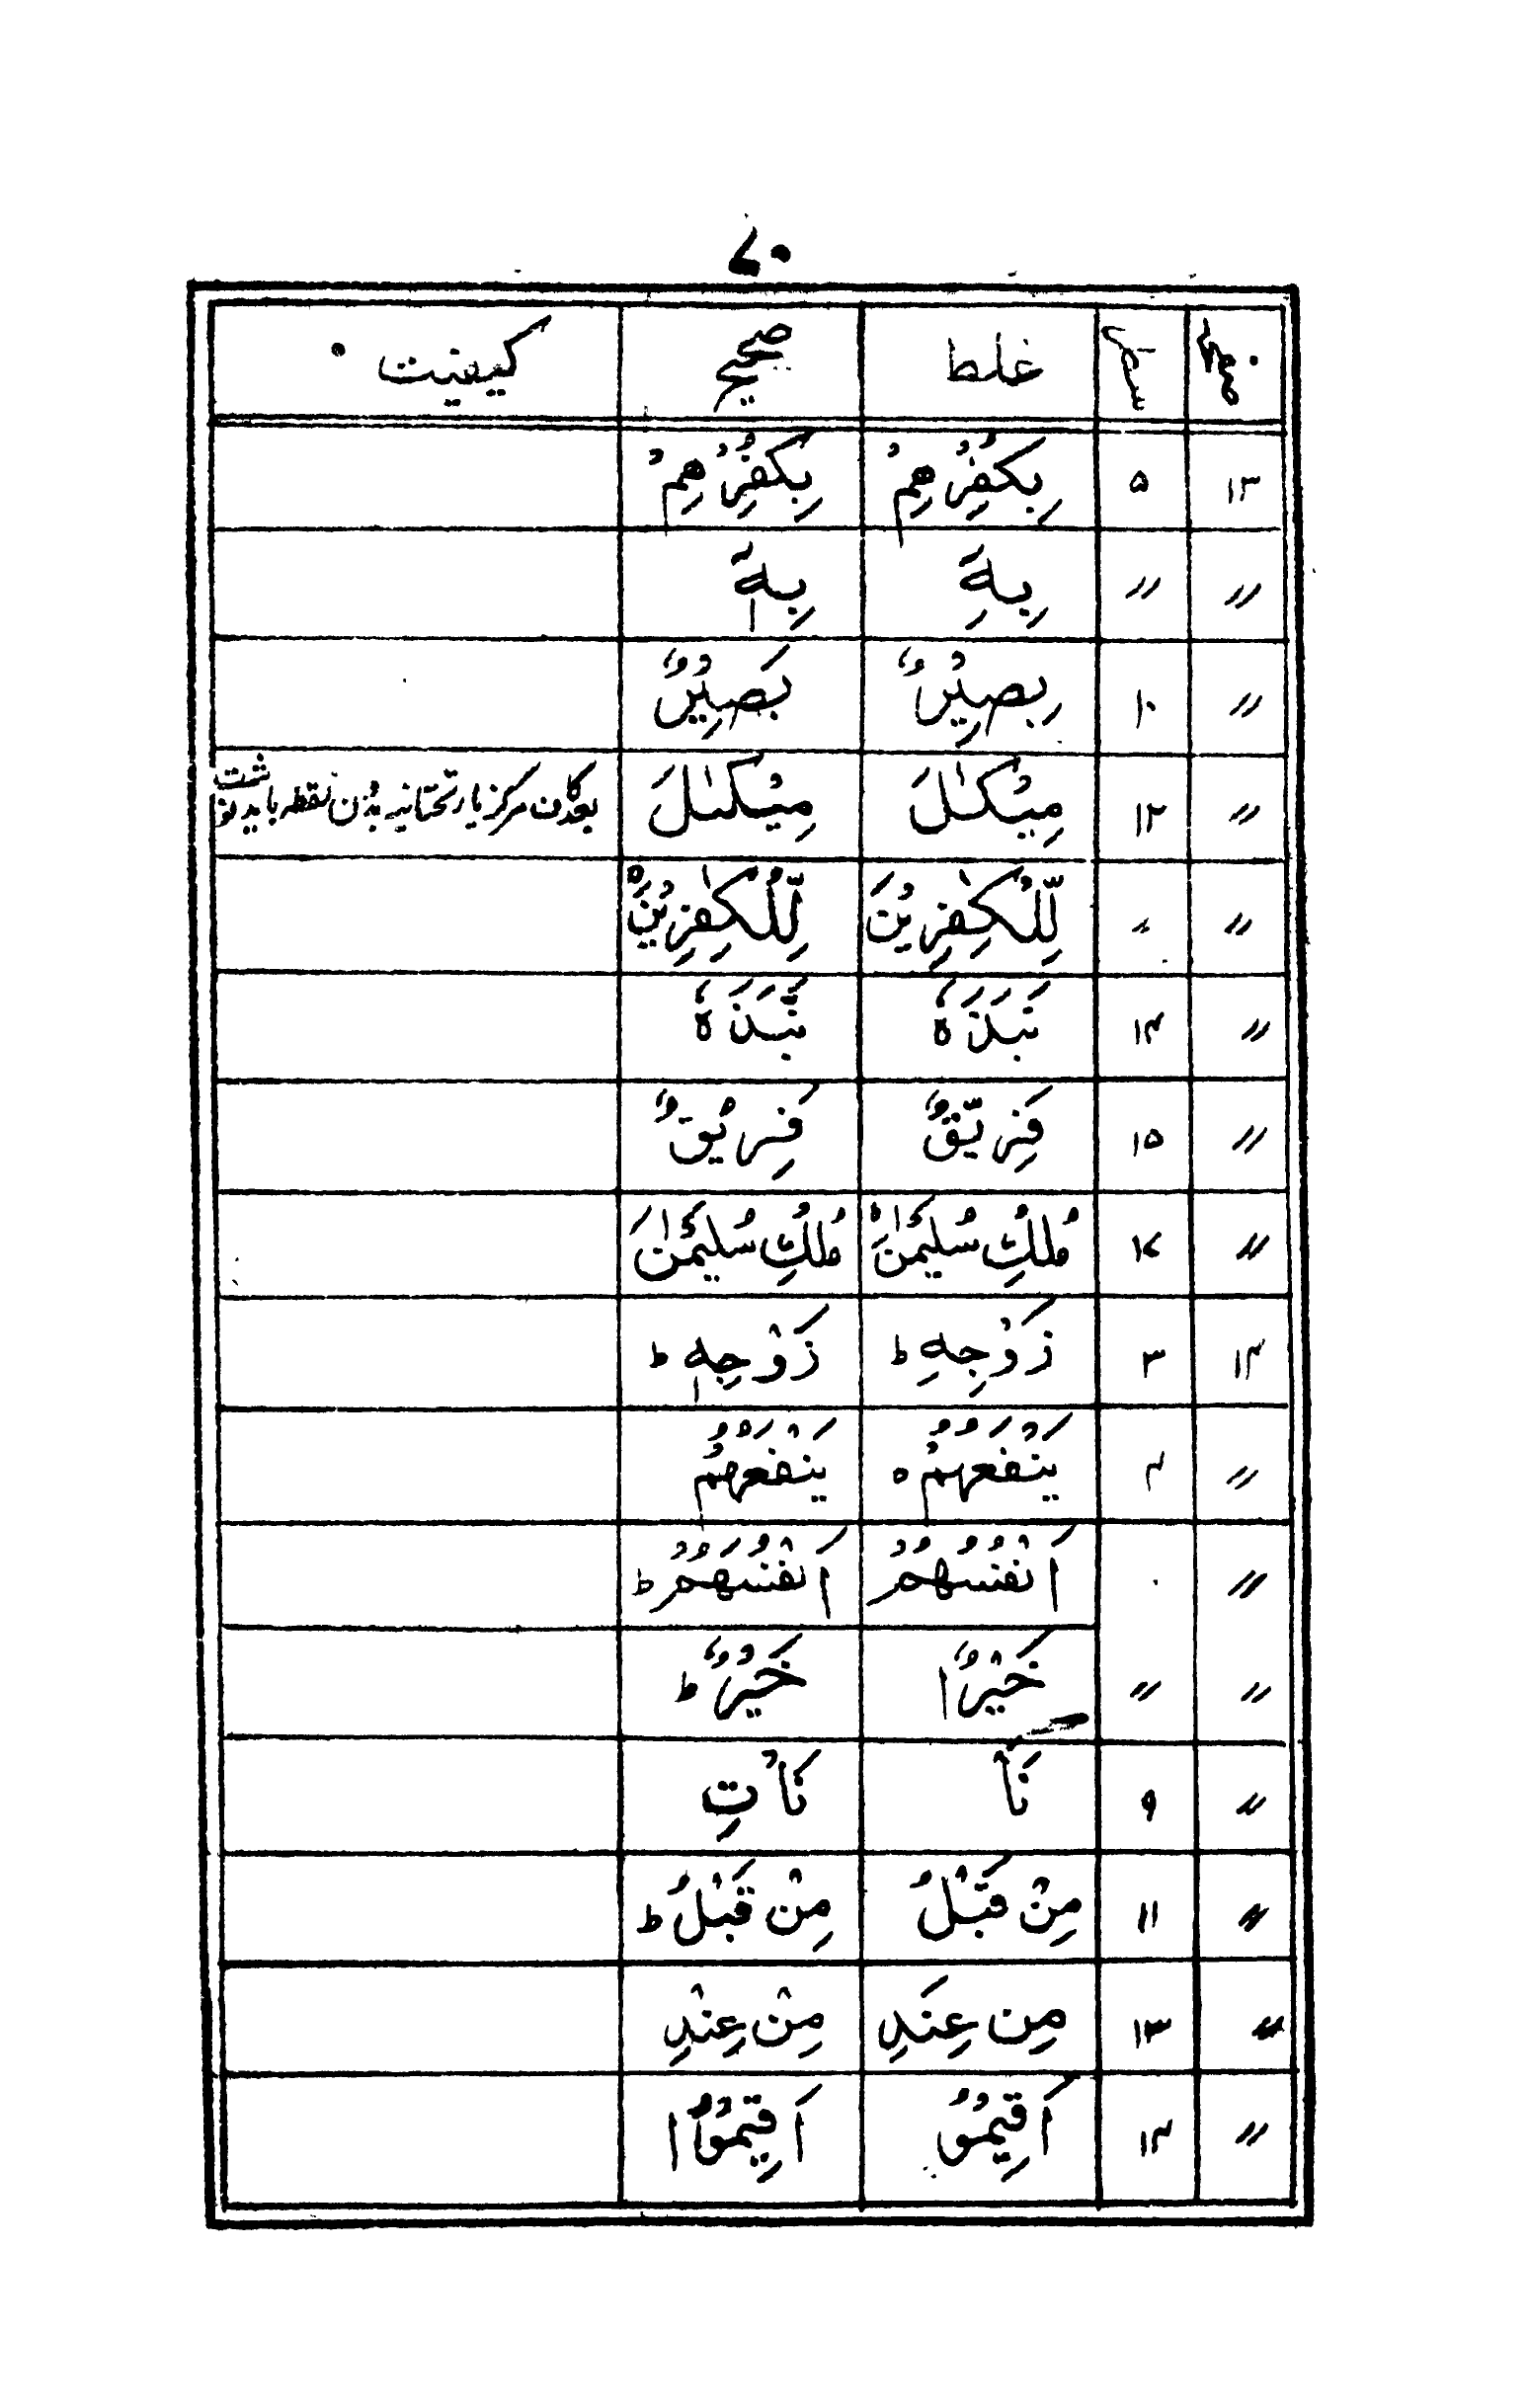 ۷۰
صفحہ سطر غلط صحیح کیفیت
۱۳ ۵ بِكُفْرِهِمْ بِكُفْرِهِمْ
〃 〃 بِهِٓ بِهٖٓ
〃 ۱۰ بِصِيْرٌۢ بَصِيْرٌۢ
〃 ۱۲ مِيْكٰلَ مِيْكٰىلَ مرکز یا تحتانیہ بدون نقطہ باید نوشت
〃 〃 لِّلْكٰفِرِيْنَ لِّلْكٰفِرِيْنَ
〃 ۱۴ نَبَذَهٗ نَّبَذَهٗ
〃 ۱۵ فَرِيْقٌ فَرِيْقٌ
〃 ۱۷ مُلْكِ سُلَيْمٰنَ مُلْكِ سُلَيْمٰنَ
۱۴ ۳ زَوْجِهِ ط زَوْجِهٖ ط
〃 ۴ يَنْفَعُهُمْ ه يَنْفَعُهُمْ
〃 اَنْفُسُهُمْ اَنْفُسَهُمْ ط
〃 〃 خَيْرٌا خَيْرٌ ط
〃 ۹ نَاْ نَاْتِ
〃 ۱۱ مِنْ قَبْلُ مِنْ قَبْلُ ط
〃 ۱۳ مِن عِنَدِ مِنْ عِنْدِ
〃 ۱۴ اَقِيْمُو اَقِيْمُوا